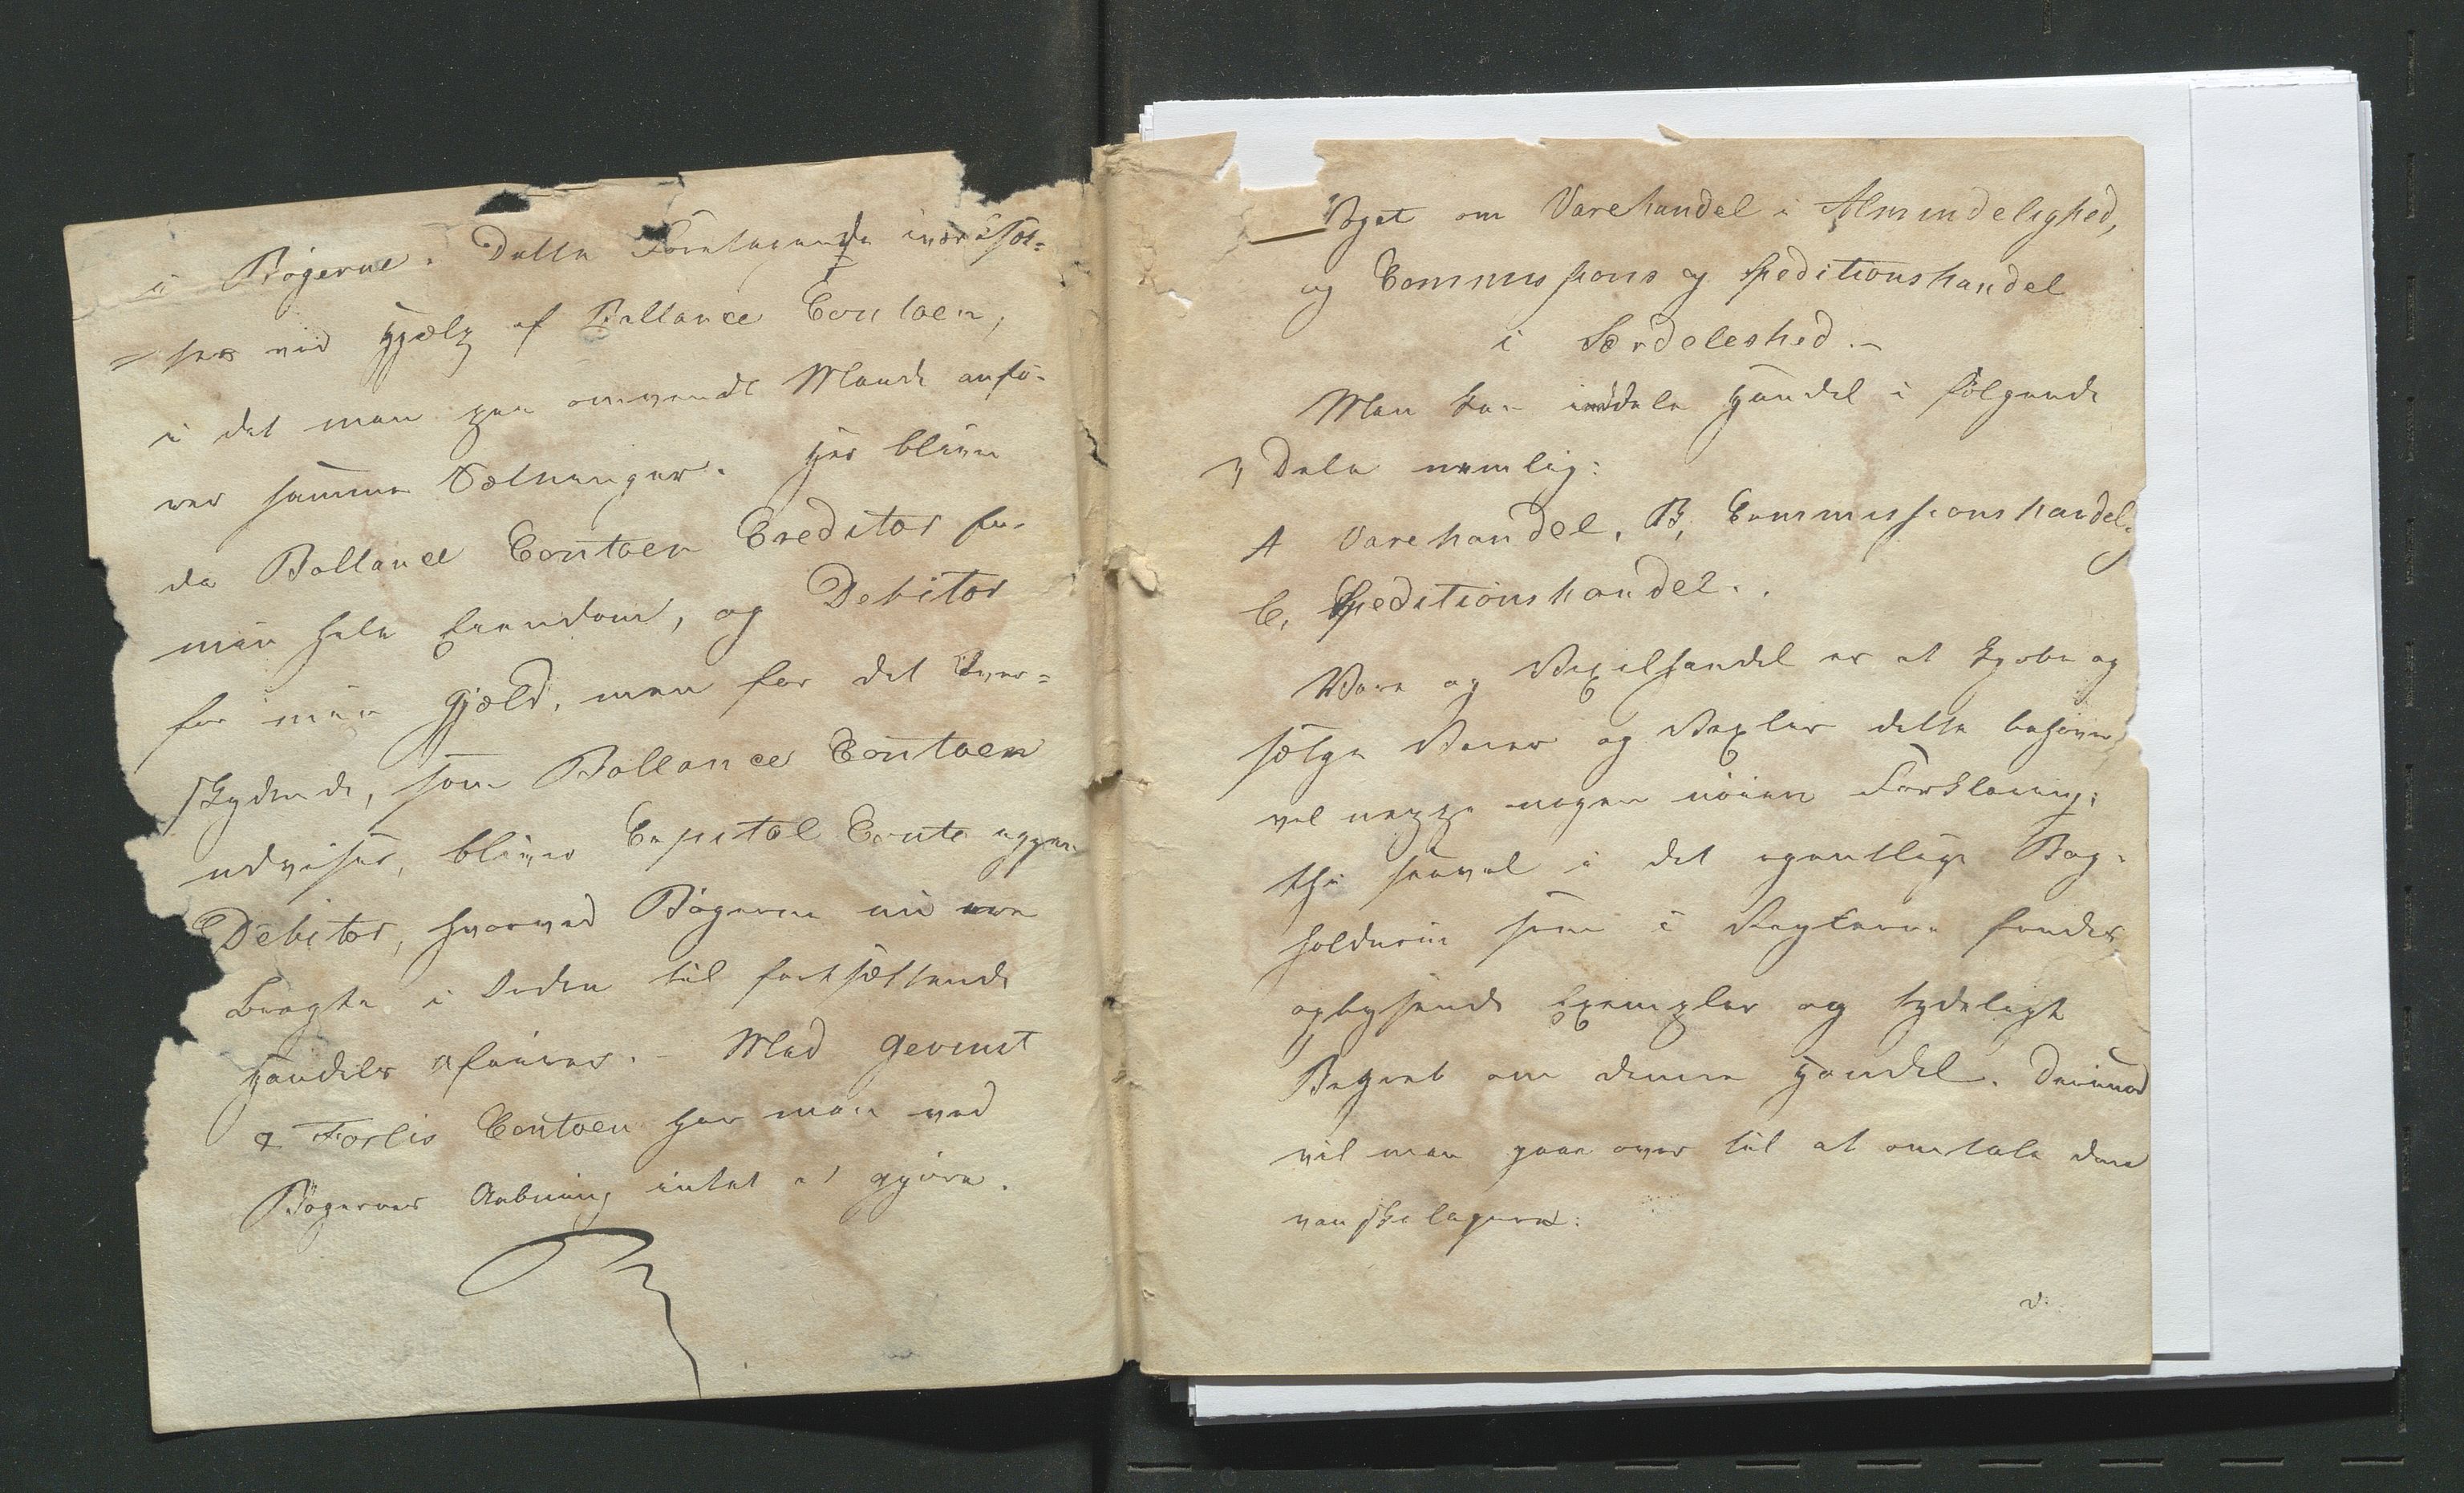 i Bøgerne. Dette Foretagende iværksæt-
= tes ved Hjælp af Ballance Contoen,
i det man paa omvendt Maade anfø-
rer samme Sætninger. Her bliver
da Ballance Contoen Creditor for
min hele Eiendom, og Debitor
for min Gjæld, men for det over=
skydende, som Ballance Contoen
udviser, bliver Capital Conto igjen
Debitor, hvorved Bøgerne nu ere
bragte i Orden til fortsættende
Handels Affairer. - Med Gevinst
& Forlis Contoen har man ved
Bøgernes Aabning intet at gjøre.
Noget om Varehandel i Almindelighed,
og Commissions og Speditionshandel
i Særdeleshed. -
Man kan inddele Handel i følgende
3 Dele nemlig:
A Varehandel, B, Commissionshandel,
C, Speditionshandel.
Vare og Vexelhandel er at kjøbe og
sælge Varer og Vexler dette behøver
vel neppe nogen nøiere Forklaring;
thi saavel i det egentlige Bog-
holderie som i finder
oplysende Exempler og tydeligt
Begreb om denne Handel. Derimod
vil man gaae over til at omtale den
vanskeligere: